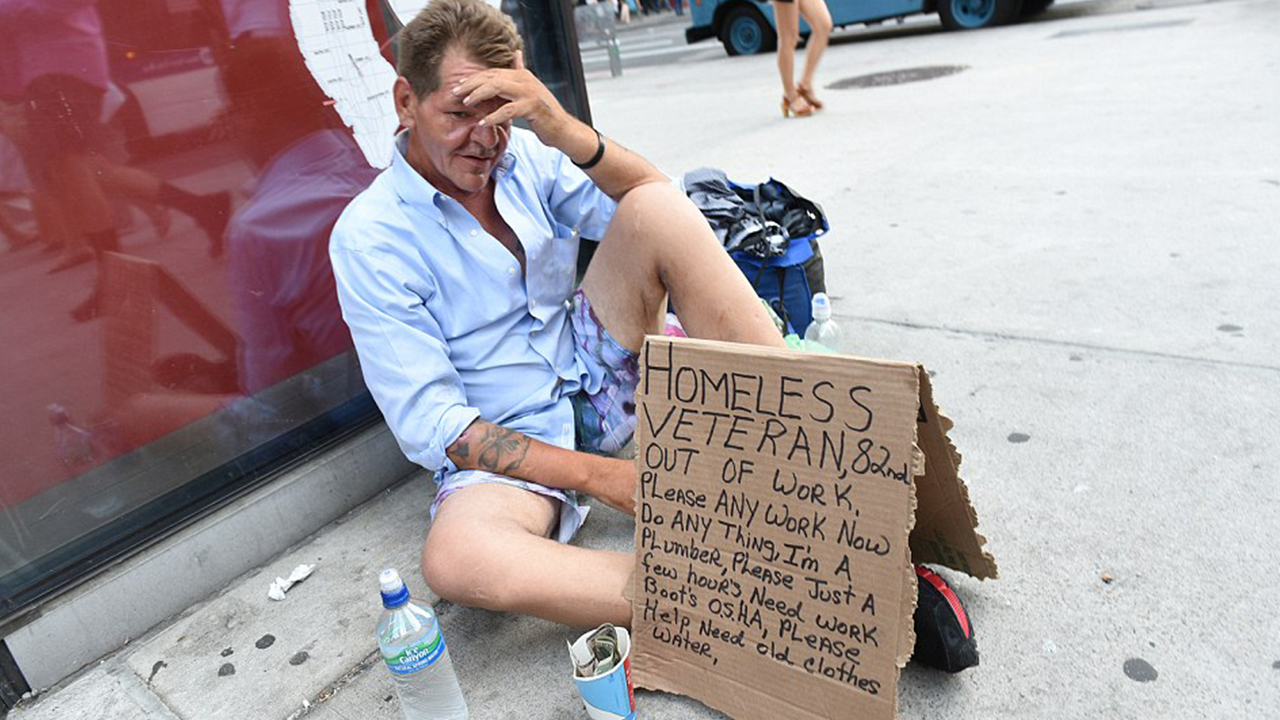 HOMELESS
VETERAN, 82nd
OUT OF WORK.
PLEASE ANY WORK NOW
DO ANY THING, I'M A
PLUMBER, PLEASE JUST A
few hour's, NEED WORK
BOOT'S O.S.HA, PLEASE
Help Need old clothes
WATER,
Ice
Canyon